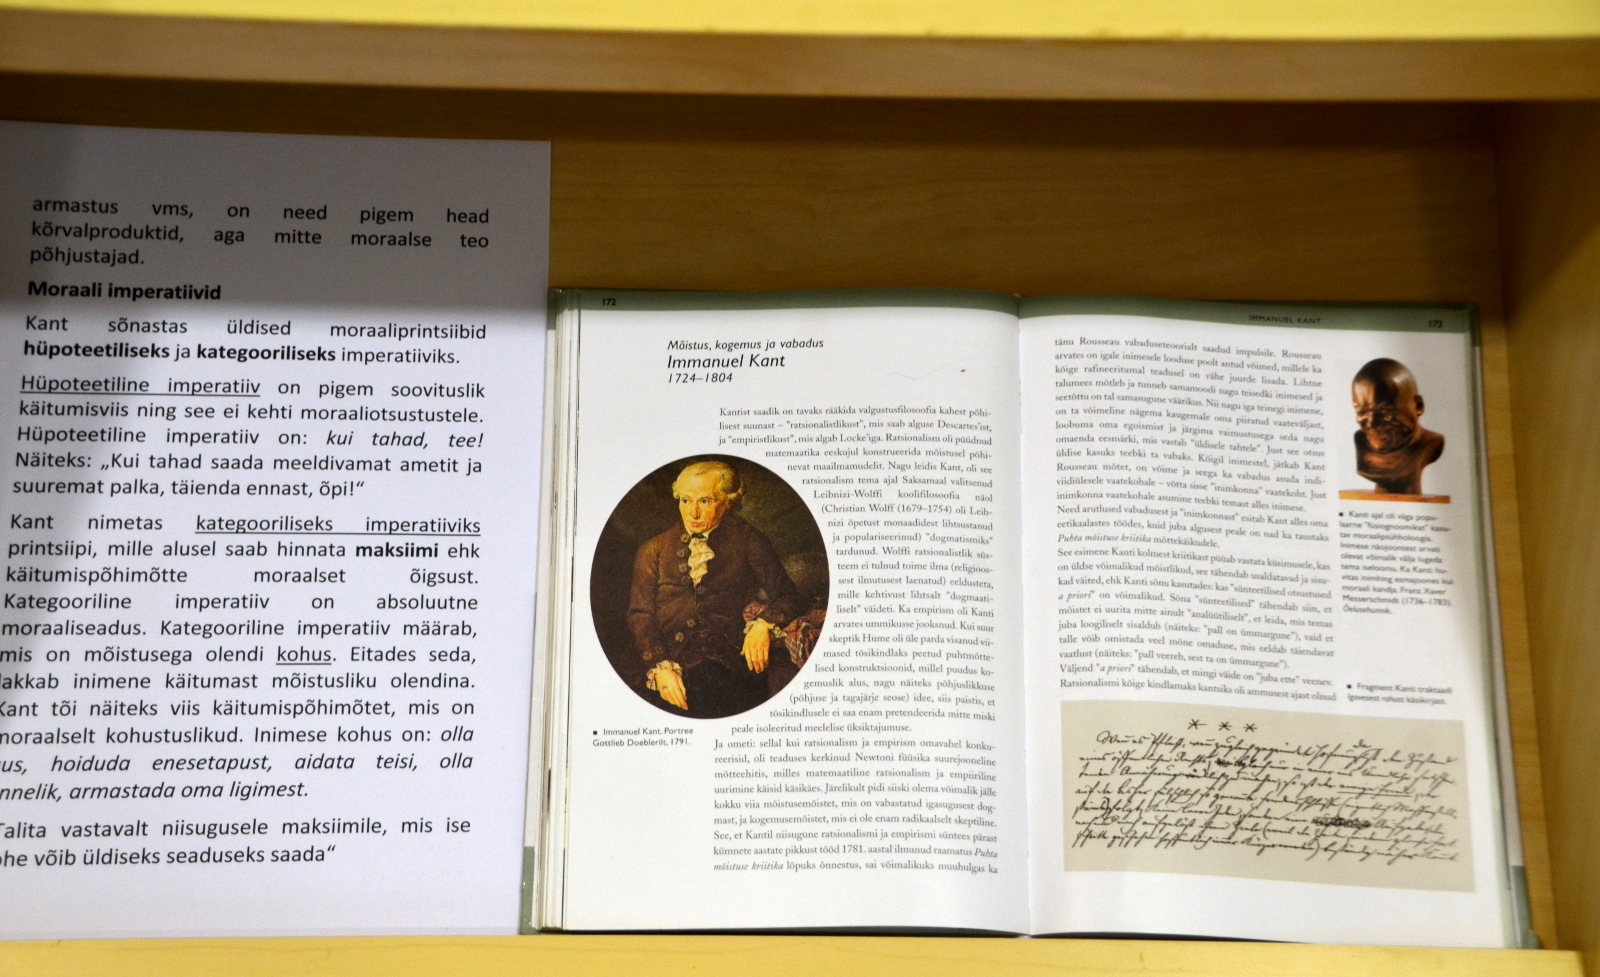 armastus vms, on need pigem head
kõrvalproduktid, aga mitte moraalse teo
põhjustajad.
Moraali imperatiivid
Kant sõnastas üldised moraaliprintsiibid
hüpoteetiliseks ja kategooriliseks imperatiiviks.
Hüpoteetiline imperatiiv on pigem soovituslik
käitumisviis ning see ei kehti moraaliotsustustele.
Hüpoteetiline imperatiiv on: kui tahad, tee!
Näiteks: „Kui tahad saada meeldivamat ametit ja
suuremat palka, täienda ennast, õpi!“
Kant nimetas kategooriliseks imperatiiviks
printsiipi, mille alusel saab hinnata maksiimi ehk
käitumispõhimõtte moraalset õigsust.
Kategooriline imperatiiv on absoluutne
moraaliseadus. Kategooriline imperatiiv määrab,
mis on mõistusega olendi kohus. Eitades seda,
lakkab inimene käitumast mõistusliku olendina.
Kant tõi näiteks viis käitumispõhimõtet, mis on
moraalselt kohustuslikud. Inimese kohus on: olla
hoiduda enesetapust, aidata teisi, olla
armastada oma ligimest.
Talita vastavalt niisugusele maksiimile, mis ise
võib üldiseks seaduseks saada“
172
Mõistus, kogemus ja vabadus
Immanuel Kant
1724–1804
Kantist saadik on tavaks rääkida valgustusfilosoofia kahest põhi-
lisest suunast – "ratsionalistlikust", mis saab alguse Descartes'ist,
ja "empiristlikust", mis algab Locke'iga. Ratsionalism oli püüdnud
matemaatika eeskujul konstrueerida mõistusel põhi-
nevat maailmamudelit. Nagu leidis Kant, oli see
ratsionalism tema ajal Saksamaal valitsenud
Leibnizi-Wolffi koolifilosoofia näol
(Christian Wolff (1679–1754) oli Leib-
nizi õpetust monaadidest lihtsustanud
ja populariseerinud) "dogmatismiks"
tardunud. Wolffi ratsionalistlik süs-
teem ei tulnud toime ilma (religioos-
sest ilmutusest laenatud) eeldusteta,
mille kehtivust lihtsalt "dogmaati-
liselt" väideti. Ka empirism oli Kanti
arvates ummikusse jooksnud. Kui suur
skeptik Hume oli üle parda visanud vii-
mased tõsikindlaks peetud puhtmõtte-
lised konstruktsioonid, millel puudus ko-
gemuslik alus, nagu näiteks põhjuslikkuse
(põhjuse ja tagajärje seose) idee, siis paistis, et
tõsikindlusele ei saa enam pretendeerida mitte miski
peale isoleeritud meelelise üksiktajumuse.
Ja ometi: sellal kui ratsionalism ja empirism omavahel konku-
reerisid, oli teaduses kerkinud Newtoni füüsika suurejooneline
mõtteehitis, milles matemaatiline ratsionalism ja empiiriline
uurimine käisid käsikäes. Järelikult pidi siiski olema võimalik jälle
kokku viia mõistusemõistet, mis on vabastatud igasugusest dog-
mast, ja kogemusemõistet, mis ei ole enam radikaalselt skeptiline.
See, et Kantil niisugune ratsionalismi ja empirismi süntees pärast
kümnete aastate pikkust tööd 1781. aastal ilmunud raamatus Puhta
mõistuse kriitika lõpuks õnnestus, sai võimalikuks muuhulgas ka
Immanuel Kant. Portree
Gottlieb Doeblerilt, 1791.
IMMANUEL KANT
173
tänu Rousseau vabaduseteoorialt saadud impulsile. Rousseau
arvates on igale inimesele looduse poolt antud võimed, millele ka
kõige rafineeritumal teadusel on vähe juurde lisada. Lihtne
talumees mõtleb ja tunneb samamoodi nagu teisedki inimesed ja
seetõttu on tal samasugune väärikus. Nii nagu iga teinegi inimene,
on ta võimeline nägema kaugemale oma piiratud vaateväljast,
loobuma oma egoismist ja järgima vaimustusega seda nagu
omaenda eesmärki, mis vastab "üldisele tahtele". Just see otsus
üldise kasuks teebki ta vabaks. Kõigil inimestel, jätkab Kant
Rousseau mõtet, on võime ja seega ka vabadus asuda indi-
viidiülesele vaatekohale – võtta sisse "inimkonna" vaatekoht. Just
inimkonna vaatekohale asumine teebki temast alles inimese.
Need arutlused vabadusest ja "inimkonnast" esitab Kant alles oma
eetikaalastes töödes, kuid juba algusest peale on nad ka taustaks
Puhta mõistuse kriitika mõttekäikudele.
See esimene Kanti kolmest kriitikast püüab vastata küsimusele, kas
on üldse võimalikud mõistlikud, see tähendab usaldatavad ja sisu-
kad väited, ehk Kanti sõnu kasutades: kas "sünteetilised otsustused
a priori" on võimalikud. Sõna "sünteetilised" tähendab siin, et
mõistet ei uurita mitte ainult "analüütiliselt", et leida, mis temas
juba loogiliselt sisaldub (näiteks: "pall on ümmargune"), vaid et
talle võib omistada veel mõne omaduse, mis eeldab täiendavat
vaatlust (näiteks: "pall veereb, sest ta on ümmargune").
Väljend "a priori" tähendab, et mingi väide on "juba ette" veenev.
Ratsionalismi kõige kindlamaks kantsiks oli ammusest ajast olnud
Kanti ajal oli väga popu-
laarne "füsiognoomikat" kasu-
tav moraalipsühholoogia.
Inimese näojoontest arvati
olevat võimalik välja lugeda
tema iseloomu. Ka Kanti hu-
vitas inimhing esmajoones kui
moraali kandja. Franz Xaver
Messerschmidt (1736–1783).
Õelusehunnik.
Fragment Kanti traktaadi
Igavesest rahust käsikirjast.